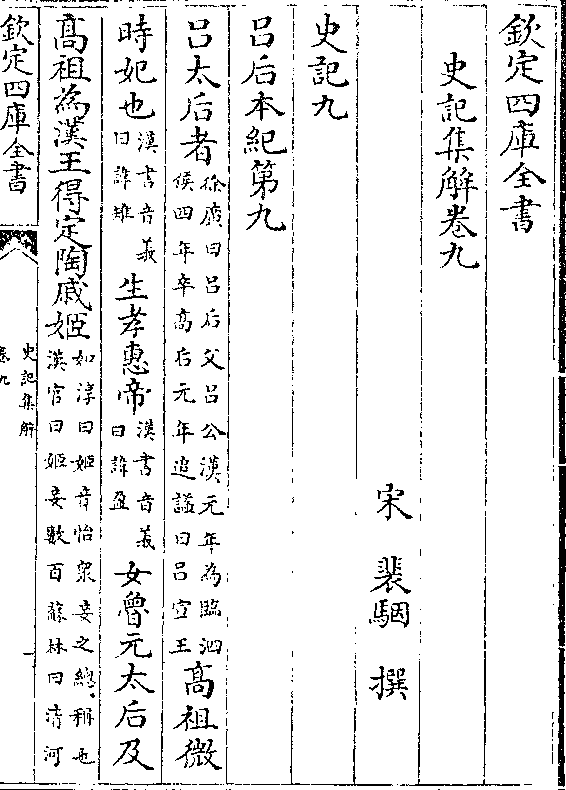 欽定四庫全書
史記集解卷九
宋 裴駰 撰
史記九
呂后本紀第九
呂太后者徐廣曰呂后父呂公漢元年為臨泗侯四年卒高后元年追諡曰呂宣王高祖微
時妃也漢書音義曰諱雉生孝惠帝漢書音義曰諱盈女魯元太后及
高祖為漢王得定陶戚姬如淳曰姬音怡衆妾之總稱也漢官曰姬妾數百蘇林曰清河
欽定四庫全書
史記集解
卷九
一